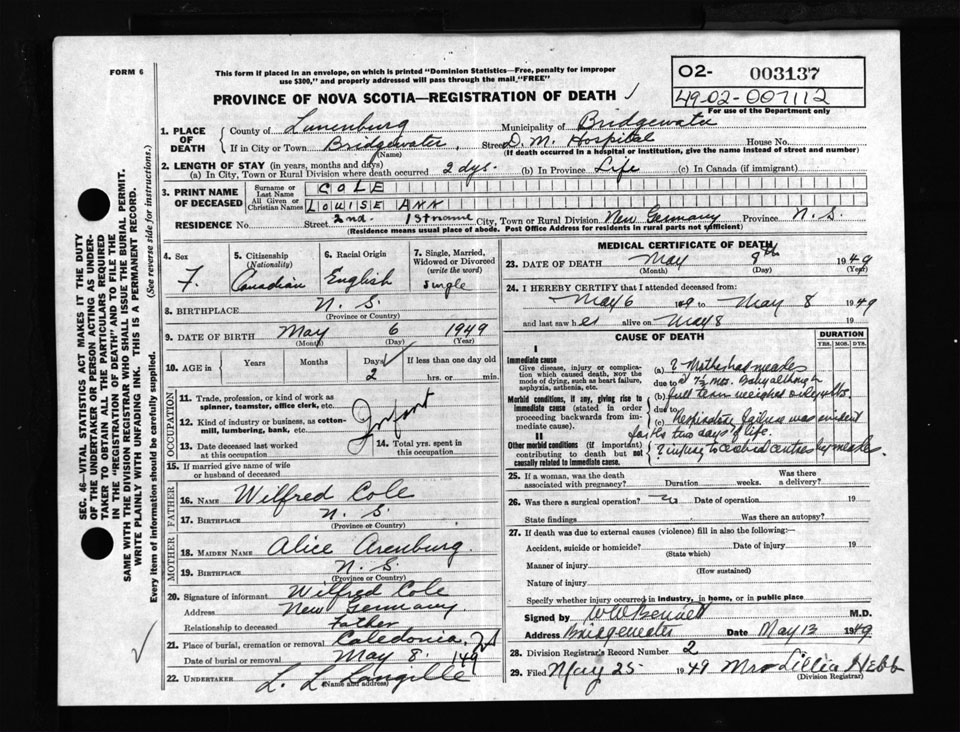 FORM 6
This form if placed in an envelope, on which is printed "Dominion Statistics—Free, penalty for improper
use $300," and properly addressed will pass through the mail "FREE"
PROVINCE OF NOVA SCOTIA—REGISTRATION OF DEATH
02- 003137
49-02-007112
For use of the Department only
1. PLACE OF DEATH
County of Lunenburg Municipality of Bridgewater
If in City or Town Bridgewater, Street D. M. Hospital House No.
(Name) (If death occurred in a hospital or institution, give the name instead of street and number)
2. LENGTH OF STAY (in years, months and days)
(a) In City, Town or Rural Division where death occurred 2 dys. (b) In Province Life (c) In Canada (if immigrant)
3. PRINT NAME OF DECEASED
Surname or Last Name COLE
All Given or Christian Names LOUISE ANN
2nd. 1st name
RESIDENCE No. Street City, Town or Rural Division New Germany Province N. S.
(Residence means usual place of abode. Post Office Address for residents in rural parts not sufficient)
4. Sex
F.
5. Citizenship (Nationality)
Canadian
6. Racial Origin
English
7. Single, Married, Widowed or Divorced (write the word)
Single
8. BIRTHPLACE N. S.
(Province or Country)
9. DATE OF BIRTH May 6 1949
(Month) (Day) (Year)
10. AGE in Years Months Days If less than one day old
2 hrs. or min.
OCCUPATION
11. Trade, profession, or kind of work as spinner, teamster, office clerk, etc.
12. Kind of industry or business, as cotton-mill, lumbering, bank, etc.
Infant
13. Date deceased last worked at this occupation
14. Total yrs. spent in this occupation
15. If married give name of wife or husband of deceased
FATHER
16. NAME Wilfred Cole
17. BIRTHPLACE N. S.
(Province or Country)
MOTHER
18. MAIDEN NAME Alice Arenburg
19. BIRTHPLACE N. S.
(Province or Country)
20. Signature of informant Wilfred Cole
Address New Germany
Relationship to deceased Father
21. Place of burial, cremation or removal Caledonia
Date of burial or removal May 8. 149
22. UNDERTAKER L. L. Langille
(Name and address)
MEDICAL CERTIFICATE OF DEATH
23. DATE OF DEATH May 8th 1949
(Month) (Day) (Year)
24. I HEREBY CERTIFY that I attended deceased from:
May 6 19 to May 8 1949
and last saw her alive on May 8 19
CAUSE OF DEATH
DURATION
YRS. MOS. DYS.
I
Immediate cause
Give disease, injury or complication which caused death, NOT the mode of dying, such as heart failure, asphyxia, asthenia, etc.
(a) ? Mother had measles
due to at 7½ mos. Baby although
Morbid conditions, if any, giving rise to immediate cause (stated in order proceeding backwards from immediate cause).
(b) full term weighed only 4 lbs
due to
(c) Respiratory failure was evident
for his two days of life.
II
Other morbid conditions (if important) contributing to death but not causally related to immediate cause.
? injury to cerebral centres by measles.
25. If a woman, was the death associated with pregnancy? Duration weeks. Was there a delivery?
26. Was there a surgical operation? Date of operation 19
State findings Was there an autopsy?
27. If death was due to external causes (violence) fill in also the following:
Accident, suicide or homicide? Date of injury 19
(State which)
Manner of injury
(How sustained)
Nature of injury
Specify whether injury occurred in industry, in home, or in public place
Signed by W W Bennett M.D.
Address Bridgewater Date May 13 1949
28. Division Registrar's Record Number 2
29. Filed May 25 1949 Mrs Lillia Hebb
(Division Registrar)
SEC. 46—VITAL STATISTICS ACT MAKES IT THE DUTY
OF THE UNDERTAKER OR PERSON ACTING AS UNDER-
TAKER TO OBTAIN ALL THE PARTICULARS REQUIRED
IN THE "REGISTRATION OF DEATH" AND TO FILE THE
SAME WITH THE DIVISION REGISTRAR WHO SHALL ISSUE THE BURIAL PERMIT.
WRITE PLAINLY WITH UNFADING INK. THIS IS A PERMANENT RECORD.
Every item of information should be carefully supplied. (See reverse side for instructions.)